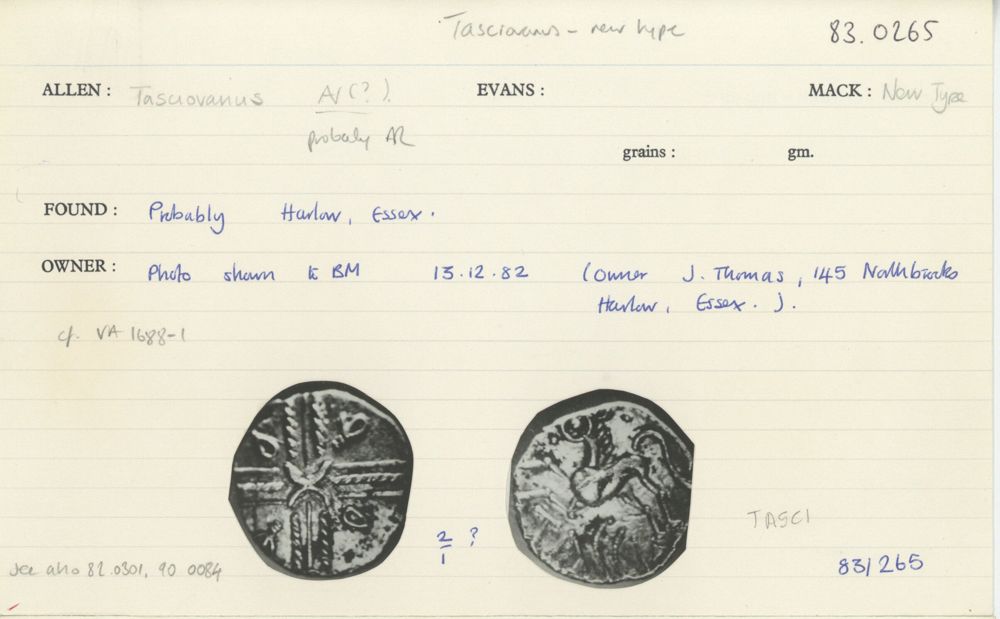 Tasciovanus - new type 83.0265
ALLEN : Tasciovanus AV(?). EVANS : MACK : New Type
probably AR
grains : gm.
FOUND : Probably Harlow, Essex.
OWNER : Photo shown to BM 13.12.82 (owner J. Thomas, 145 Northbrooks
Harlow, Essex. ).
cf. VA 1688-1
TASCI
2/1 ?
83/265
See also 82.0301, 90 0084